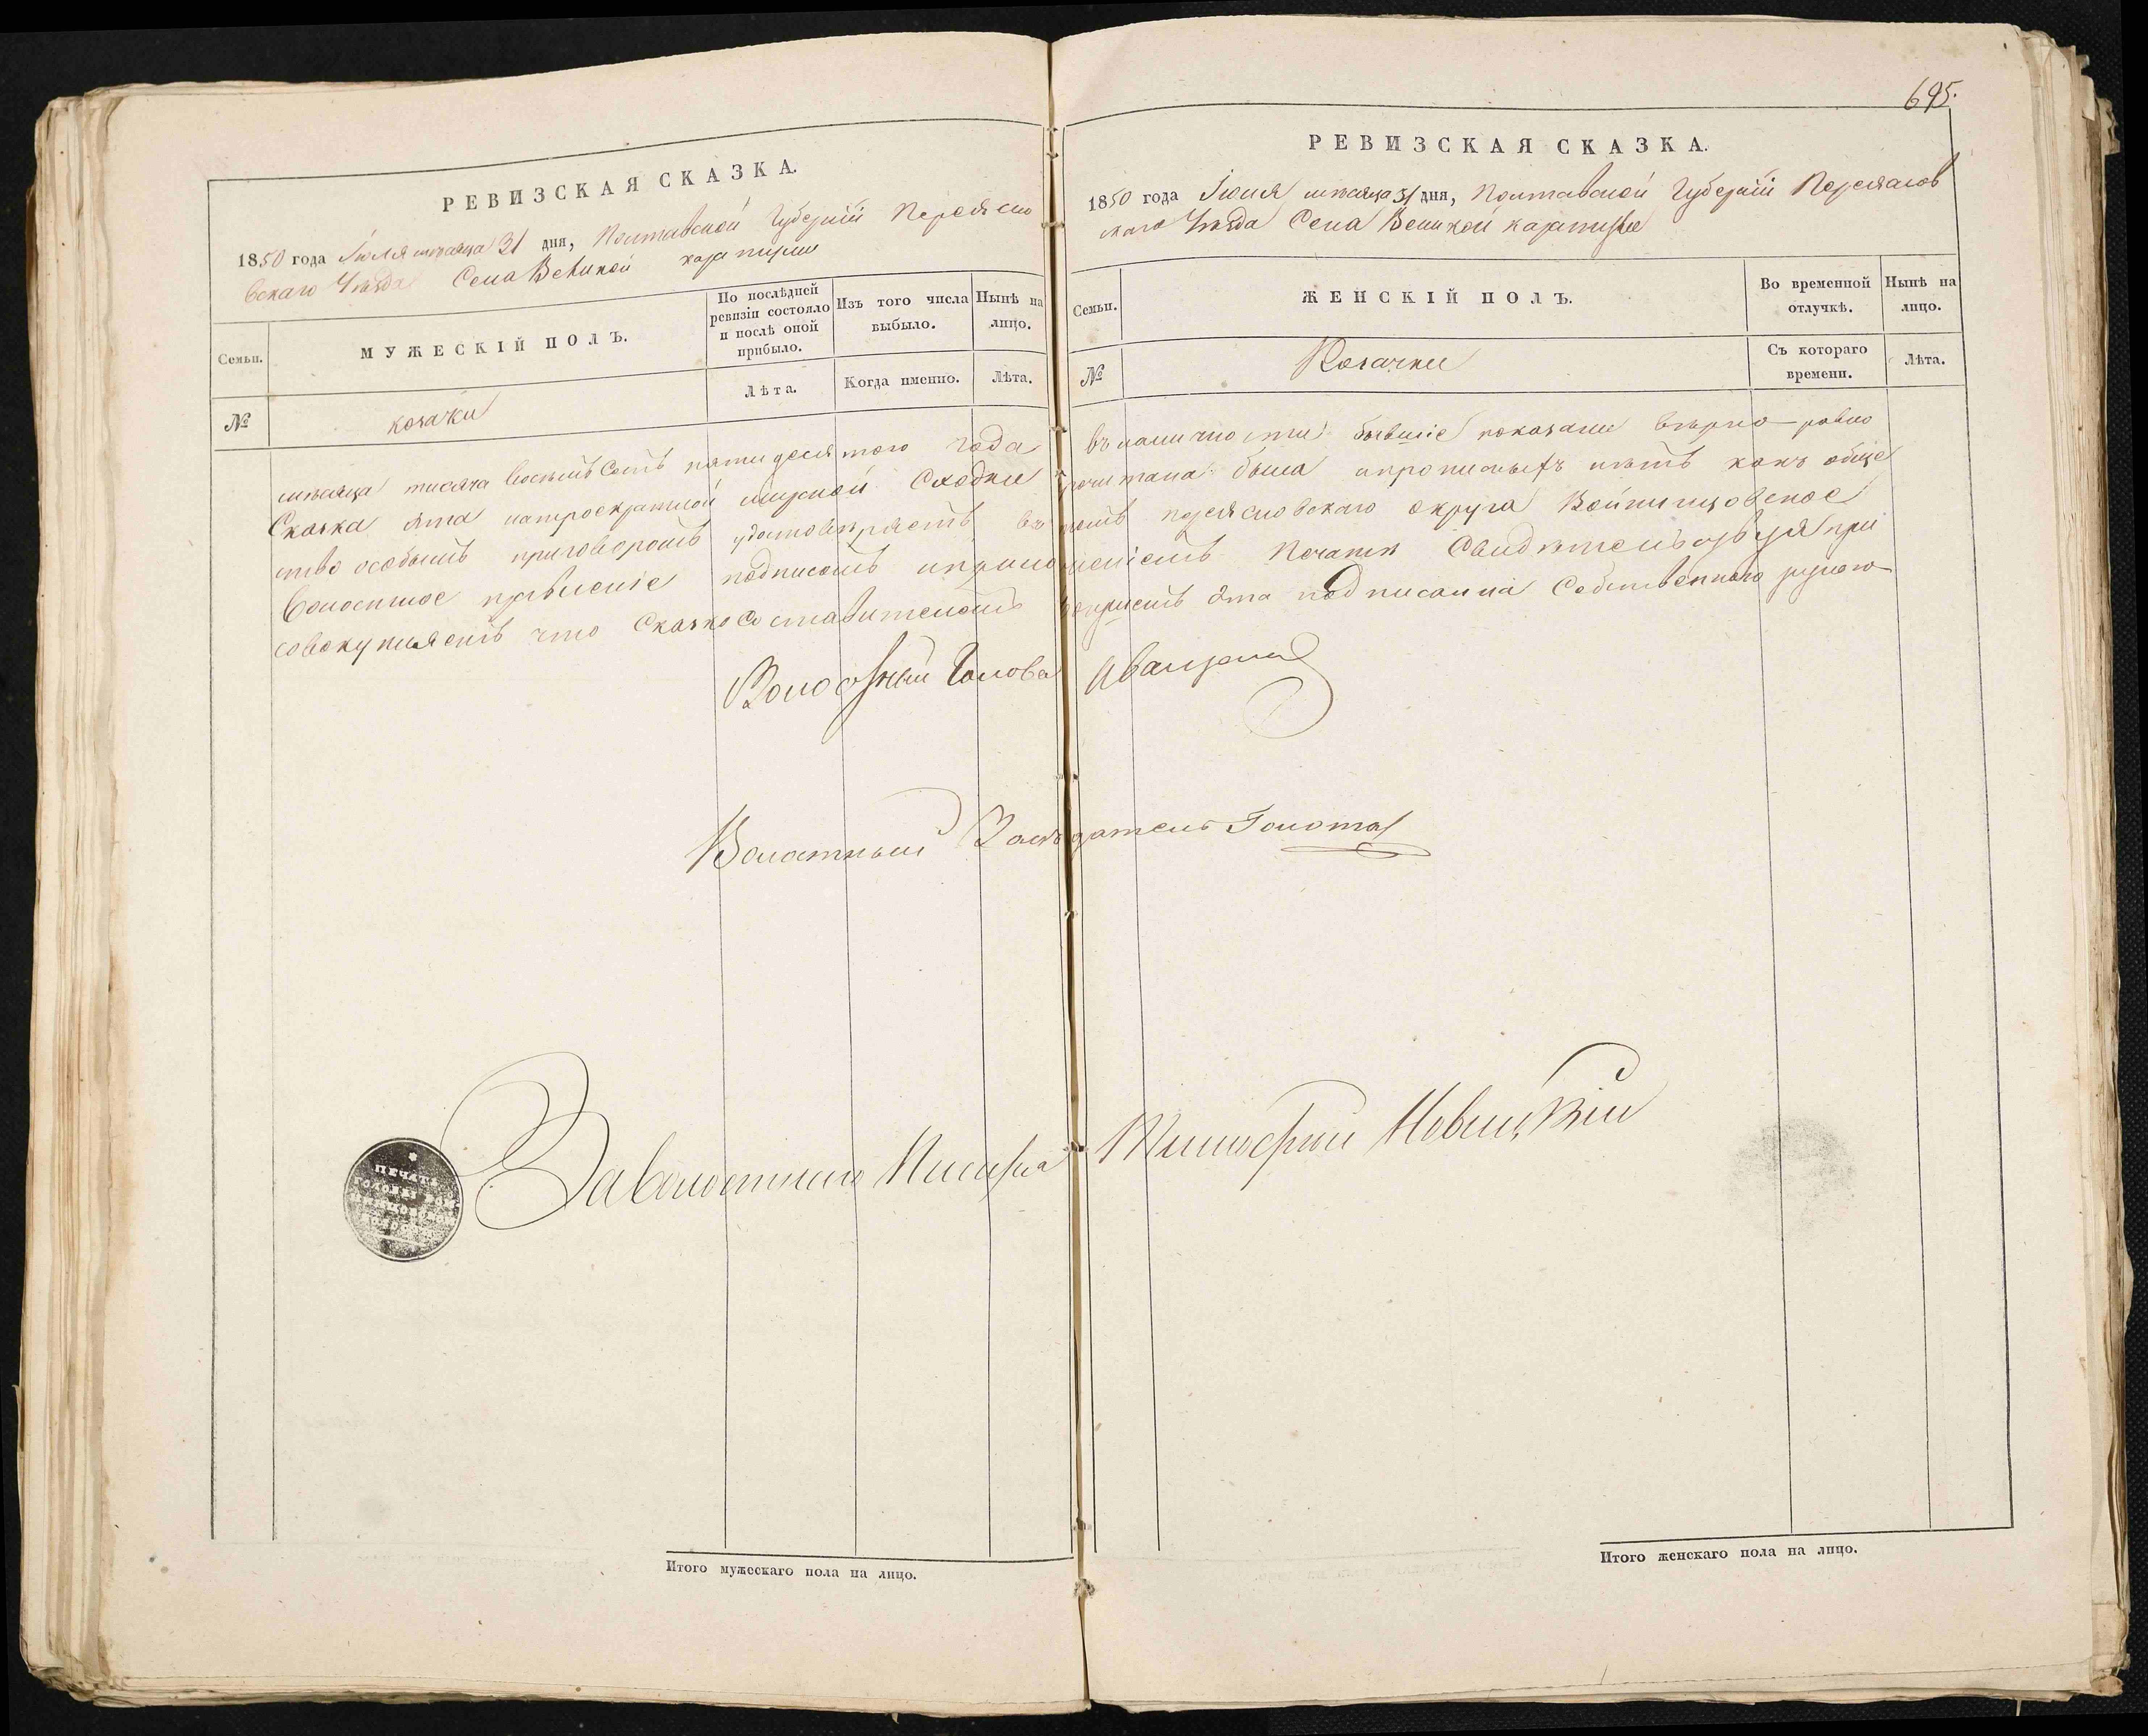 695.
РЕВИЗСКАЯ СКАЗКА.
1850 года Іюля мѣсяца 31 дня, Полтавской Губерніи Переясло
вскаго Уѣзда Села Великой каратули
Семьи.
МУЖЕСКІЙ ПОЛЪ.
По послѣдней ревизіи состояло и послѣ оной прибыло.
Изъ того числа выбыло.
Нынѣ на лицо.
№
козаки
Лѣта.
Когда именно.
Лѣта.
РЕВИЗСКАЯ СКАЗКА.
1850 года Іюля мѣсяца 31 дня, Полтавской Губерніи Переяслов
скаго Уѣзда Села Великой каратули
Семьи.
ЖЕНСКІЙ ПОЛЪ.
Во временной отлучкѣ.
Нынѣ на лицо.
№
Козачки
Съ котораго времени.
Лѣта.
мѣсяца тисяча восемъ Сотъ пятидесятого года въ наличности бывшіе показани вѣрно равно
Сказка эта на троекратной мирской Сходки прочитана была а прописныхъ нѣтъ какъ обще
ство особымъ приговоромъ удостовѣряетъ въ томъ переясловскаго округа Войтовское
Волостное правленіе подписомъ и приложеніемъ Печати Свидѣтельствуя при
совокупляетъ что Сказко Составителемъ эта подписанна Собственного рукою
Волосный Голова Иваницкій
Волостный Засѣдатель Голота
За волостного Писаря Тимофѣй Новицкій
ПЕЧАТЬ
ГОЛОВЫ
Итого мужескаго пола на лицо.
Итого женскаго пола на лицо.